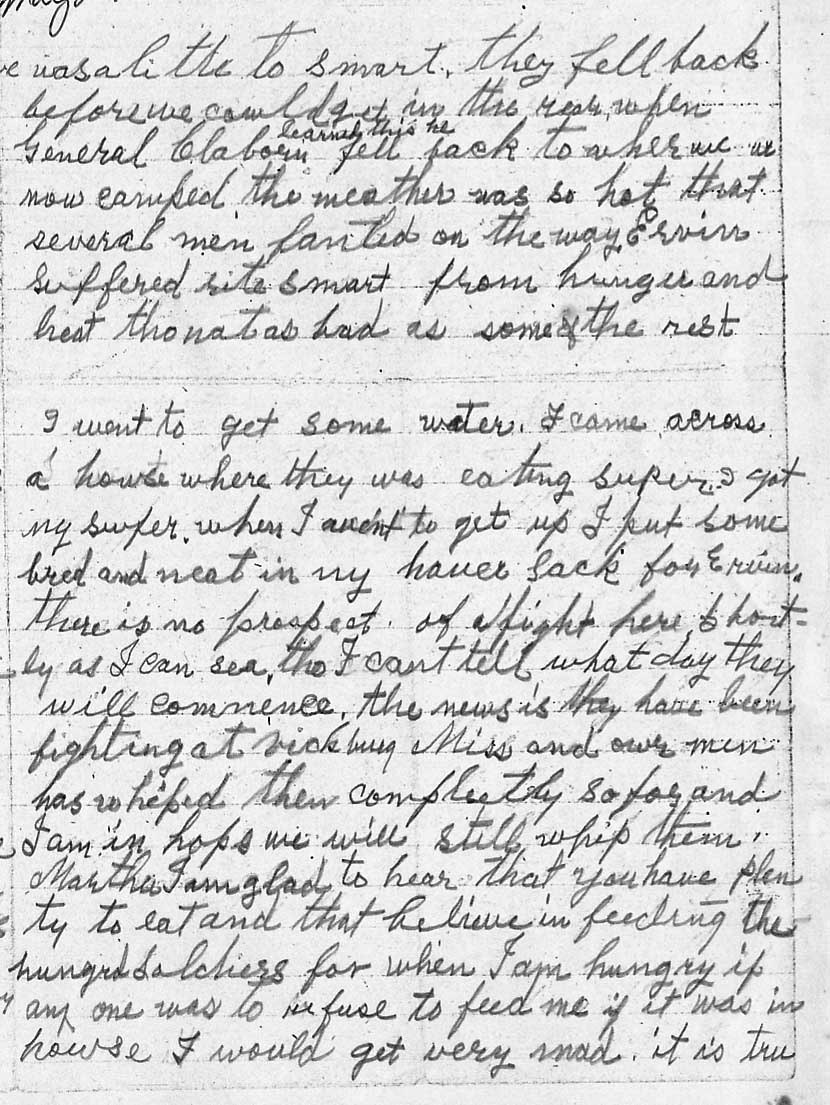 was a little to smart. they fell back
before we cowld get in the rear, when
learned this he
General Claborn fell back to wher we
now camped the weather was so hot that
several men fanted on the way Ervin
suffered rite smart from hunger and
heat tho nat as bad as some of the rest
I went to get some water. I came across
a howse where they was eating super. I got
my super. when I went to get up I put some
bred and meat in my haver sack for Ervin.
there is no prospect of a fight here short-
ly as I can sea, tho I cant tell what day they
will commence. the news is they have been
fighting at vicksburg Miss and owr men
has whiped them compleetly so far and
I am in hops we will still whip them.
Martha I am glad to hear that you have plen
ty to eat and that believe in feeding the
hungrd Solchers for when I am hungry if
any one was to refuse to feed me if it was in
howse I would get very mad. it is tru